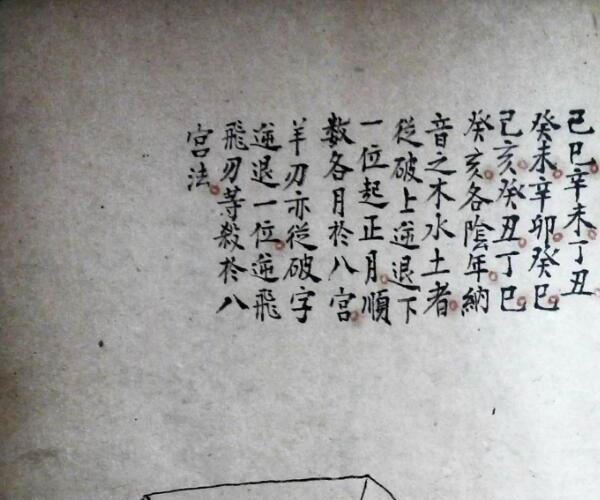 己巳辛未丁丑
癸未辛卯癸巳
己亥癸丑丁巳
癸亥各陰年納
音之木水土者
從破上逆退下
一位起正月順
数各月於八宮
羊刃亦從破字
逆退一位逆飛
飛刃等殺於八
宮法